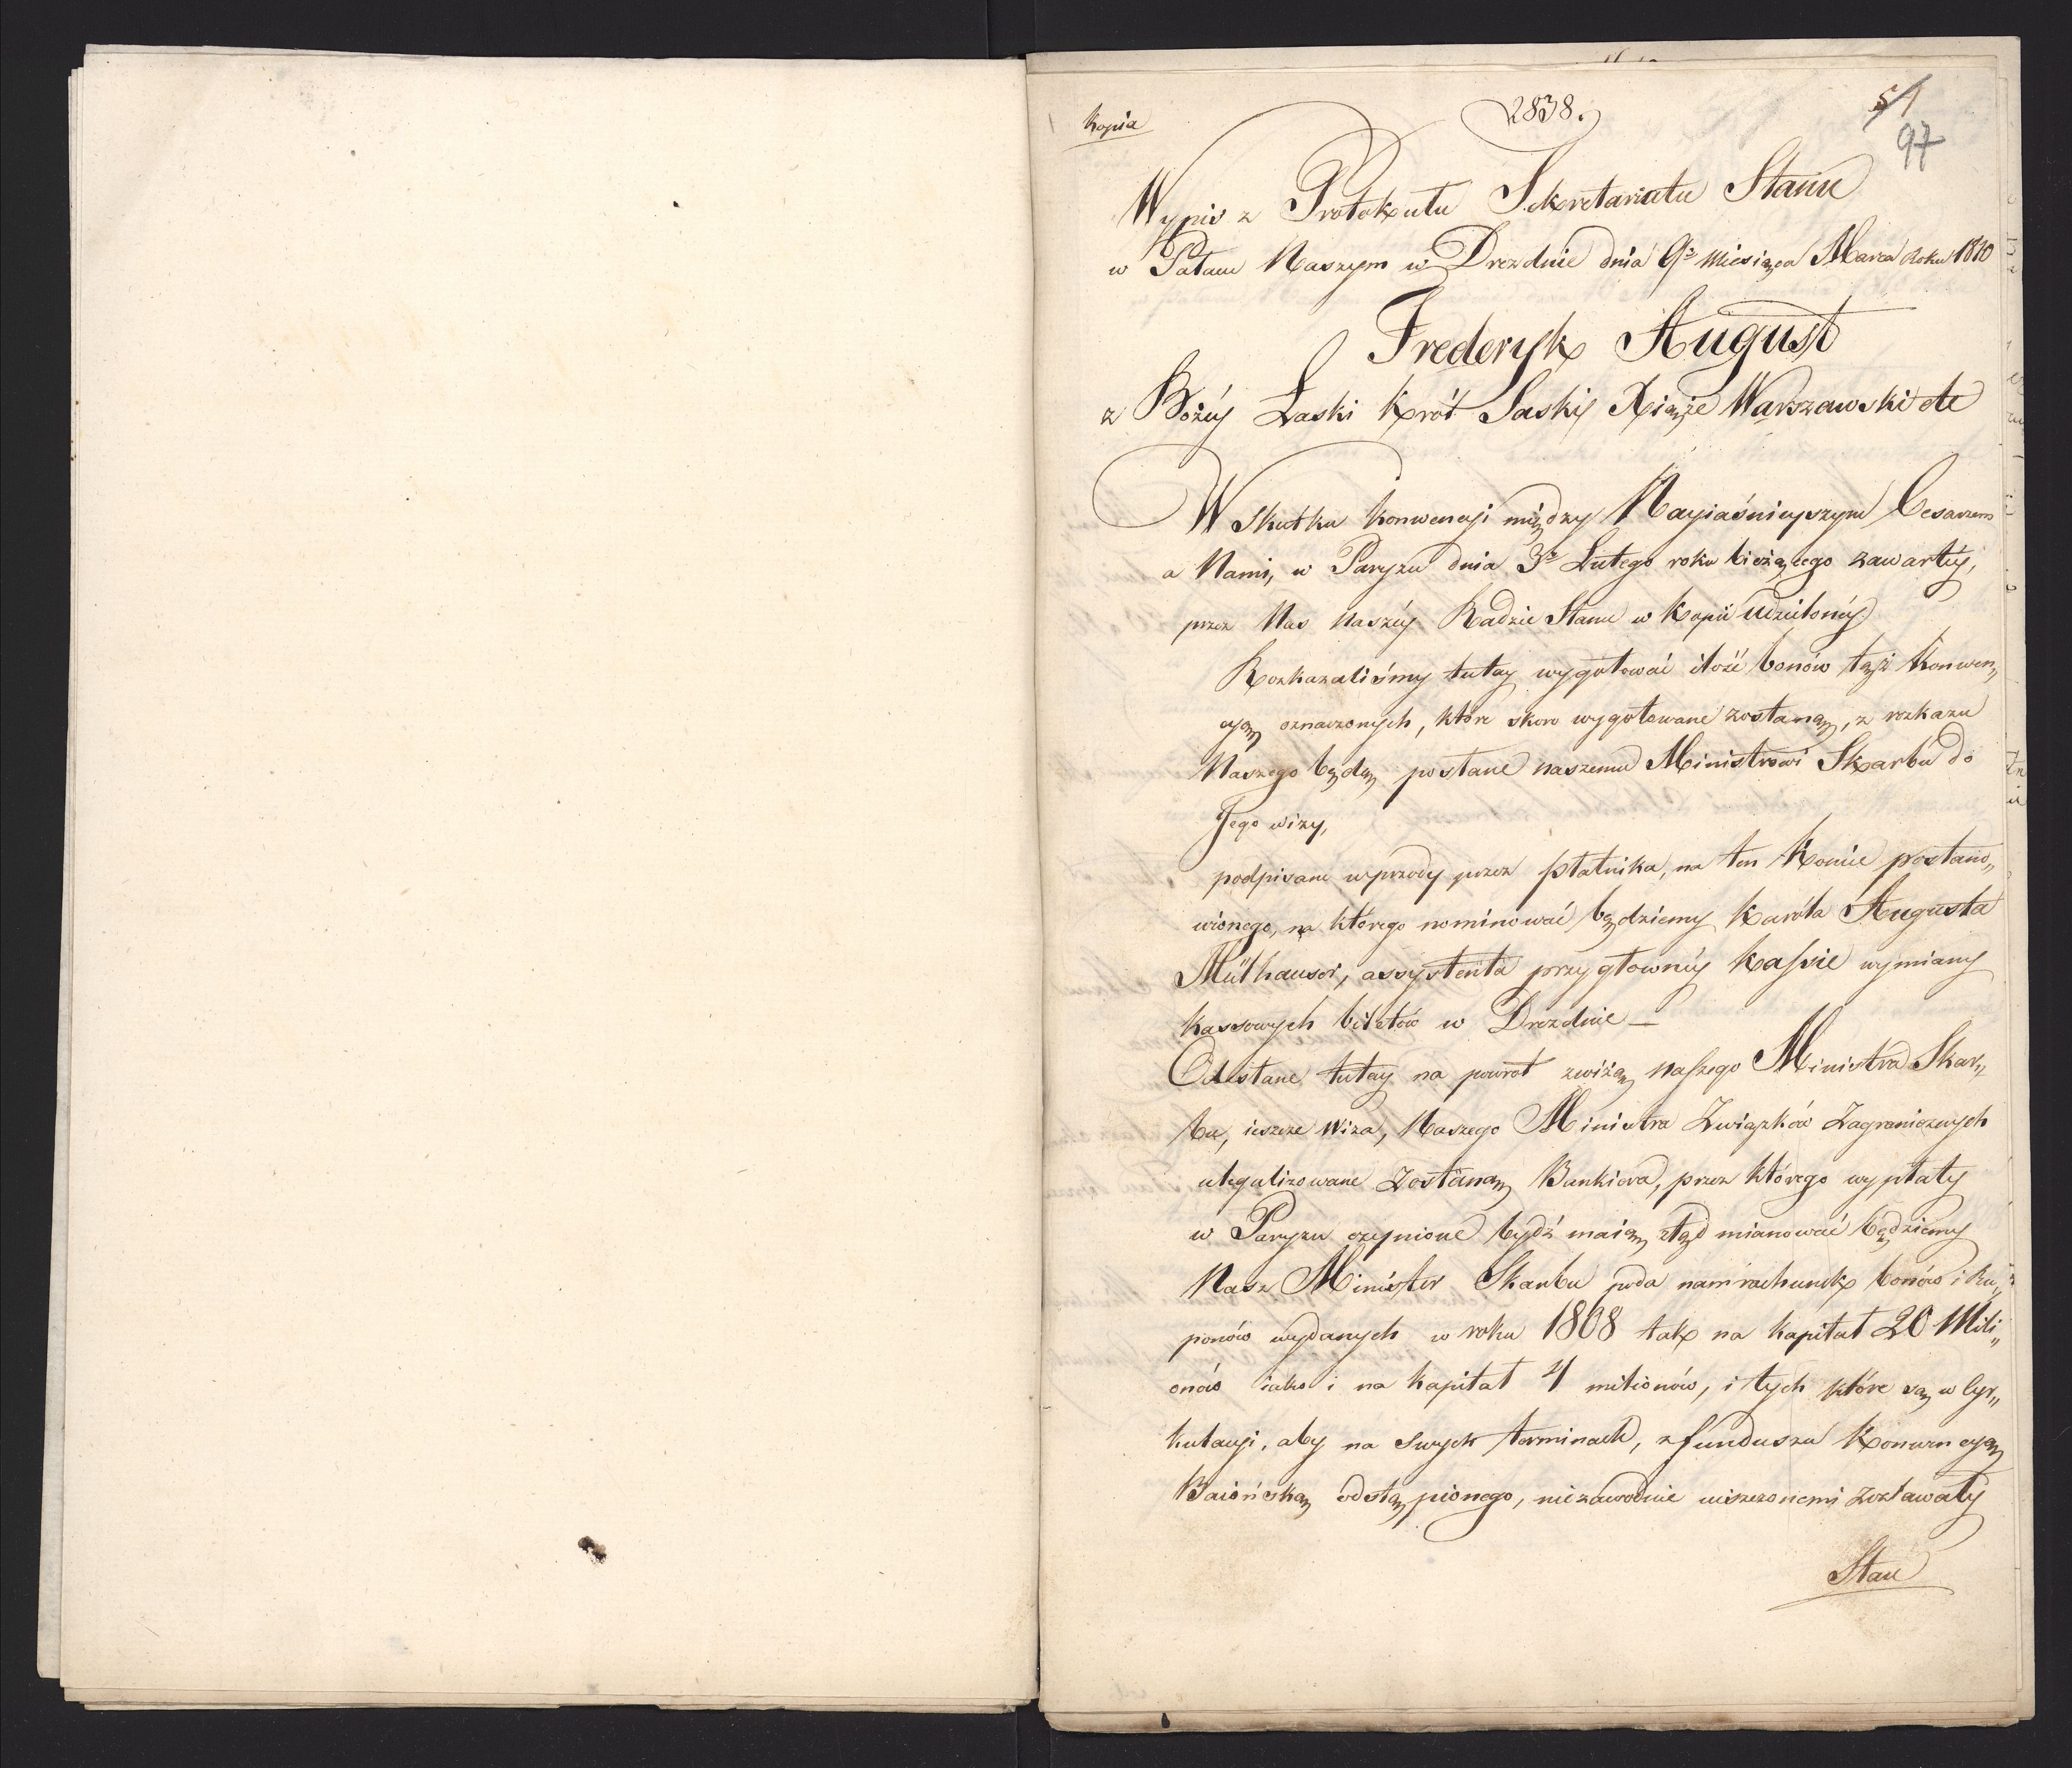 Kopia
2838.
51
97
Wypis z Protokułu Sekretariatu Stanu
w Pałacu Naszym w Dreznie dnia 9º Miesiąca Marca Roku 1810
Frederyk August
z Bożéy Łaski Król Saski Xiąże Warszawski etc
W Skutku konwencyi między Nayiaśnieyszym Cesarzem
a Nami, w Paryzu dnia 3º Lutego roku bieżącego zawartéy,
przez Nas Naszéy Radzie Stanu w Kopii udzielonéy
Rozkazaliśmy tutay wygotować ilość bonów tąż Konwen„
cyą oznaczonych, które skoro wygotowane zostaną, z rozkazu
Naszego będą posłane naszemu Ministrowi Skarbu do
Jego wizy,
podpisane wprzódy przez płatnika, na ten Koniec postano„
wionego, na którego nominować będziemy Karóla Augusta
Mülhauser, assystenta przy głownéy Kassie wymiany
kassowych biletów w Dreznie —
Odesłane tutay na powrót zwizą Naszego Ministra Skar„
bu, ieszcze Wiza, Naszego Ministra Związków Zagranicznych
ulegalizowane zostaną Bankiera, przez którego wypłaty
w Paryzu czynione bydź maią ztąd mianować będziemy
Nasz Minister Skarbu poda nam rachunek bonów i Ku„
ponów wydanych w roku 1808 tak na kapitał 20 Mili„
onów iako i na kapitał 4 milionów, i tych które są w Cyr„
kulacyi, aby na swych terminach, z funduszu Konwencyą
Baiońską odstąpionego, niezawodnie uiszczonemi zostawały
Stan